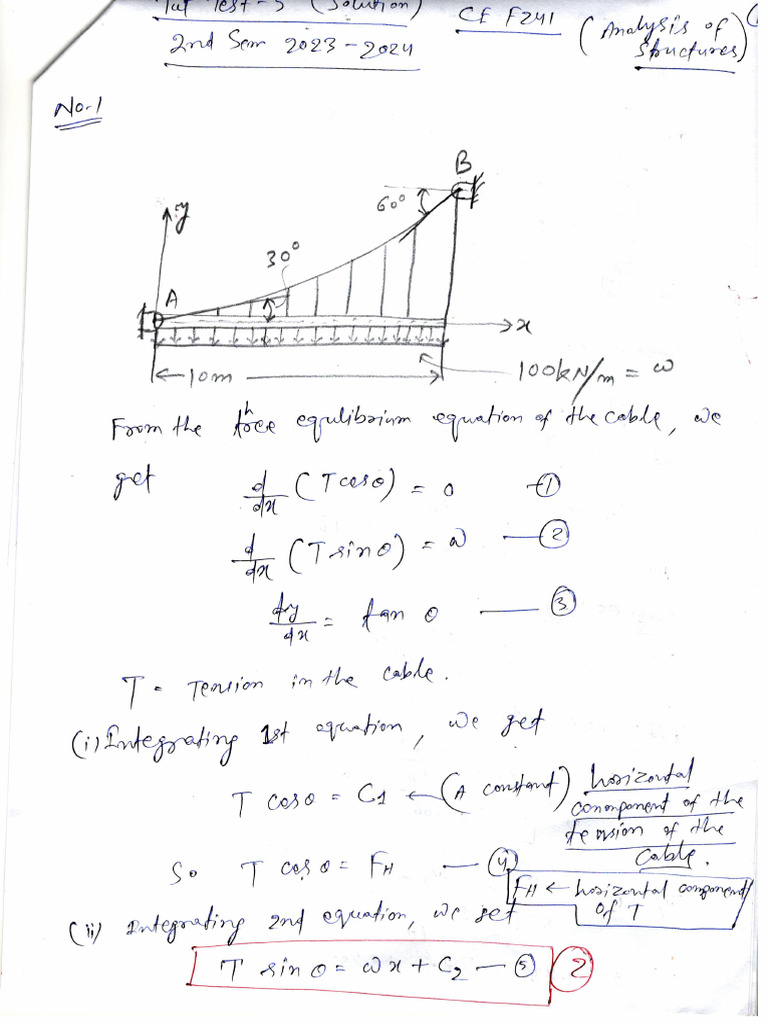 Tut Test-5 (Solution) CE F241 (Analysis of Structures)
2nd Sem 2023-2024
No-1
B
60°
y
30°
A
x
10m
100kN/m = w
From the three equlibrium equation of the cable, we
get d/dx (T cosθ) = 0 —①
d/dx (T sinθ) = w —②
dy/dx = tan θ —③
T = Tension in the cable.
(i) Integrating 1st equation, we get
T cosθ = C1 ← (A constant) horizontal
component of the
tension of the
cable.
So T cosθ = FH —④
FH ← horizontal component
of T
(ii) Integrating 2nd equation, we get
T sinθ = wx + C2 —⑤ ②